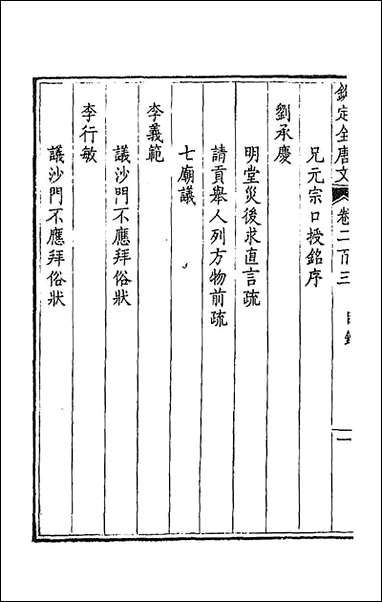 欽定全唐文 卷二百三 目錄 一
兄元宗口授銘序
劉承慶
明堂災後求直言疏
請貢舉人列方物前疏
七廟議
李義範
議沙門不應拜俗狀
李行敏
議沙門不應拜俗狀